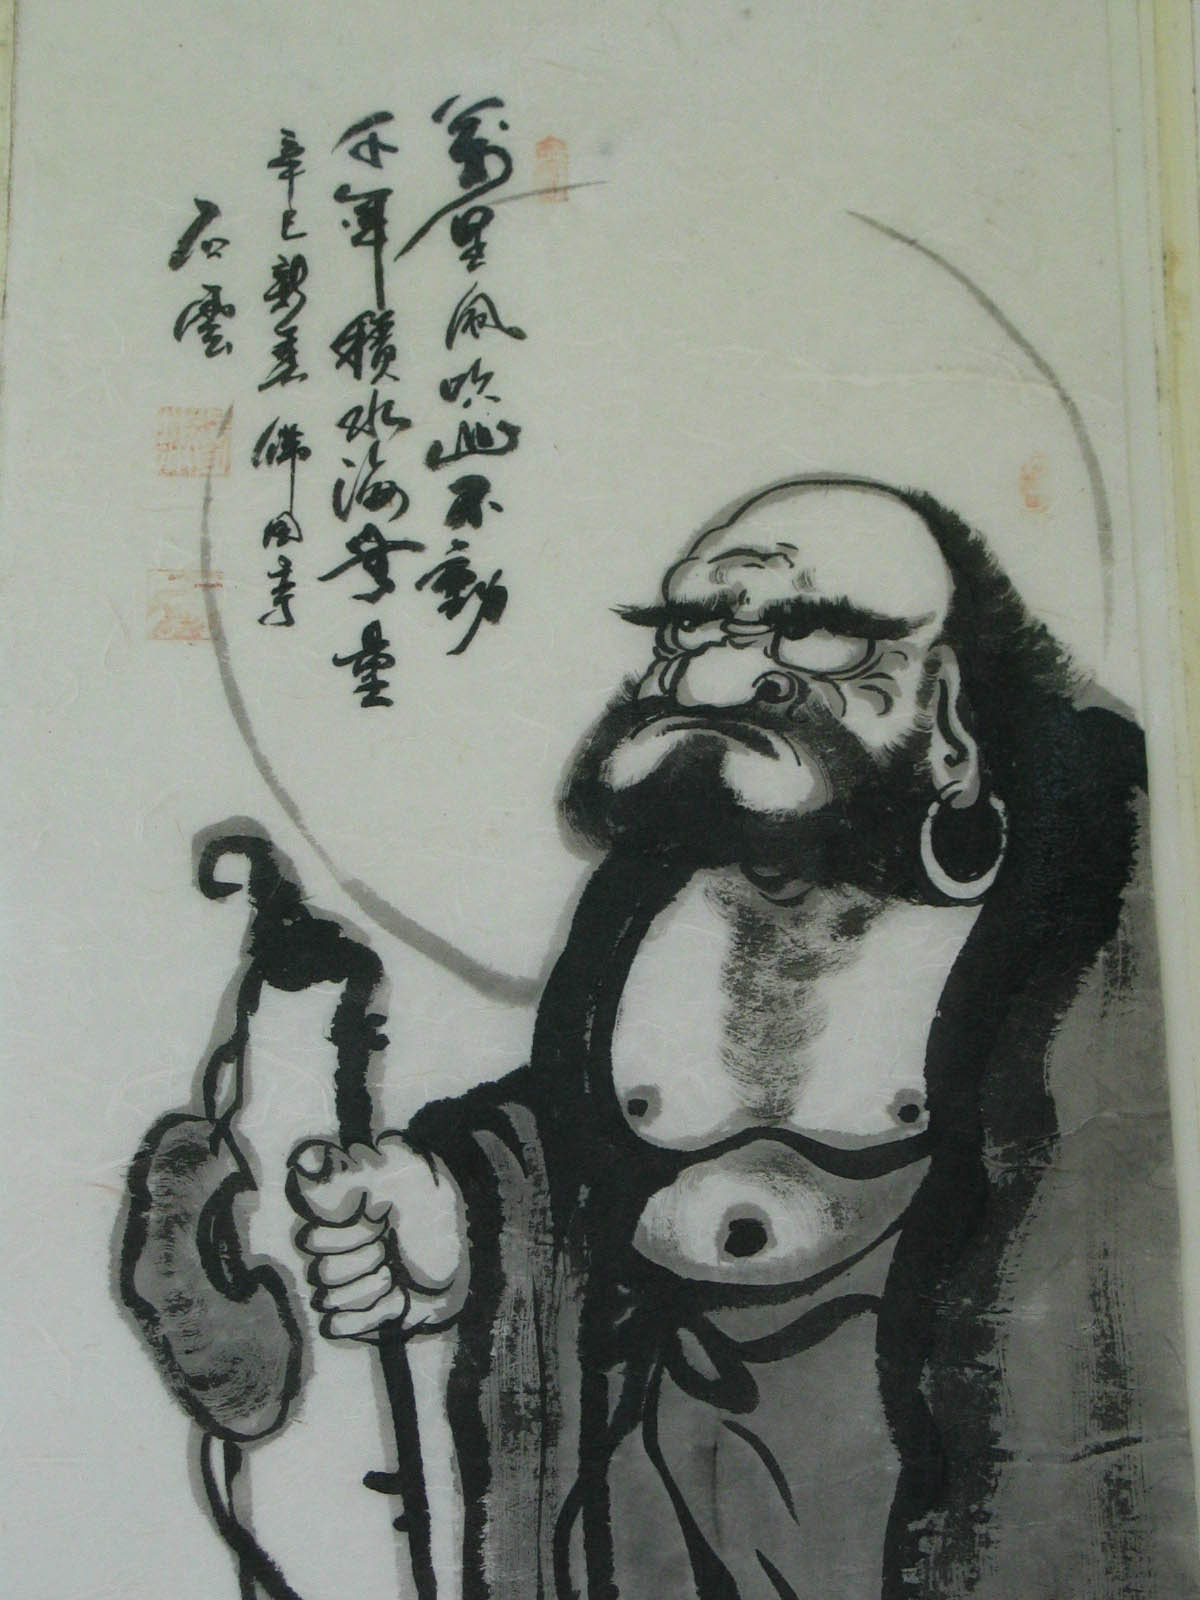 萬里風吹山不動
千年積水海無量
辛巳新春佛国寺
石雲